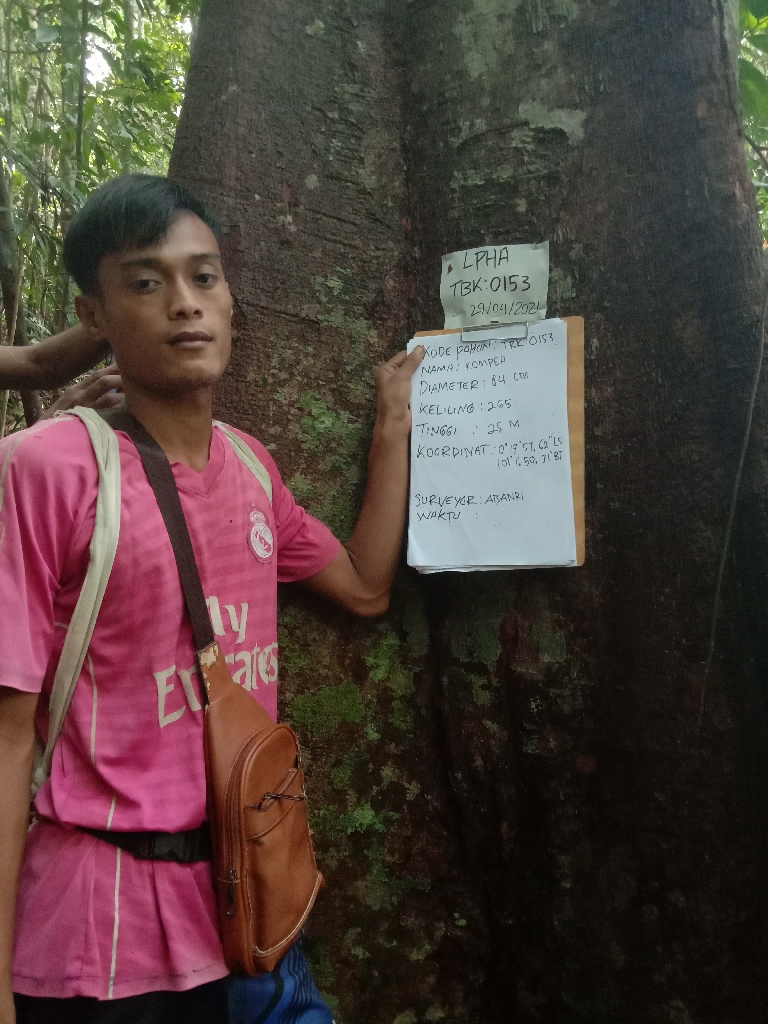 LPHA
TBK:0153
29/04/2021
KODE POHON: TBK 0153
NAMA: KOMPEA
DIAMETER: 84 CM
KELILING: 265
TINGGI : 25 M
KOORDINAT: 0°19'57, 62"LS
101°1,50, 31"BT
SURVEYOR: ABANRI
WAKTU :
Fly
Emirates